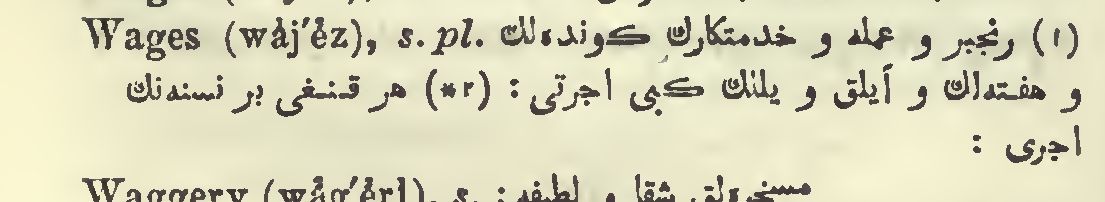 Wages (wåj′êz), s. pl. (١) رنجبر و عمله و خدمتكارك كوندەلك
و هفتەلك و آیلق و یللك كبی اجرتی : (٢*) هر قنغی بر نسنەنك
اجری :
Waggery (wåg′êrî), s. مسخرەلق شقا و لطیفه :